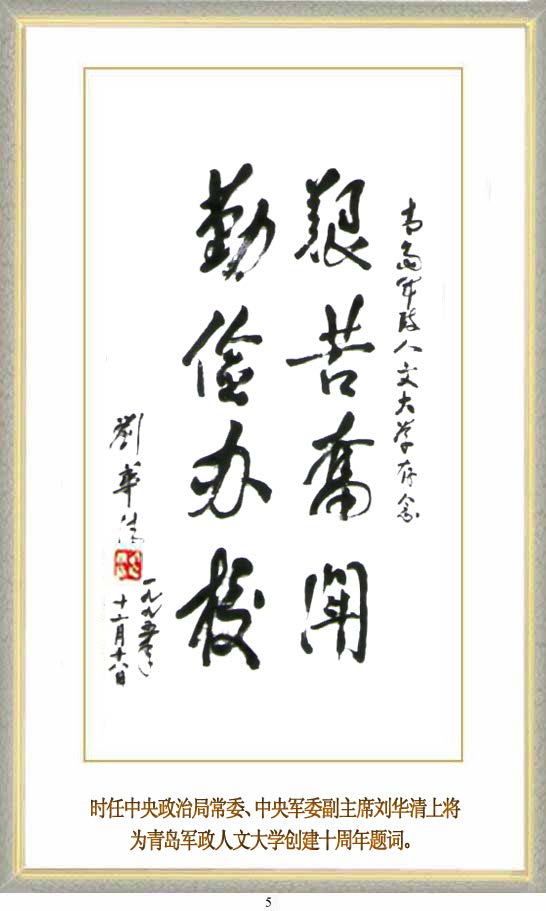 青岛军政人文大学存念
艰苦奋闘
勤俭办校
劉華清
一九九五年
十二月十八日
时任中央政治局常委、中央军委副主席刘华清上将
为青岛军政人文大学创建十周年题词。
5